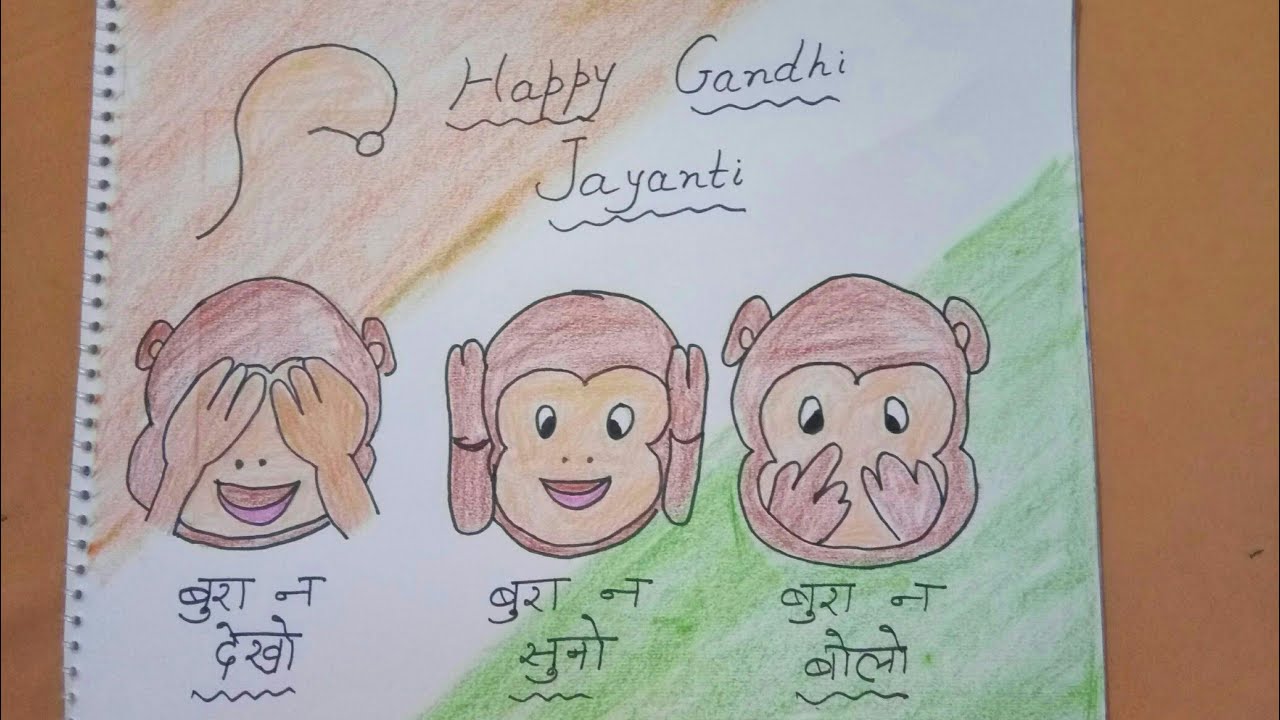 Happy Gandhi
Jayanti
बुरा न
देखो
बुरा न
सुनो
बुरा न
बोलो